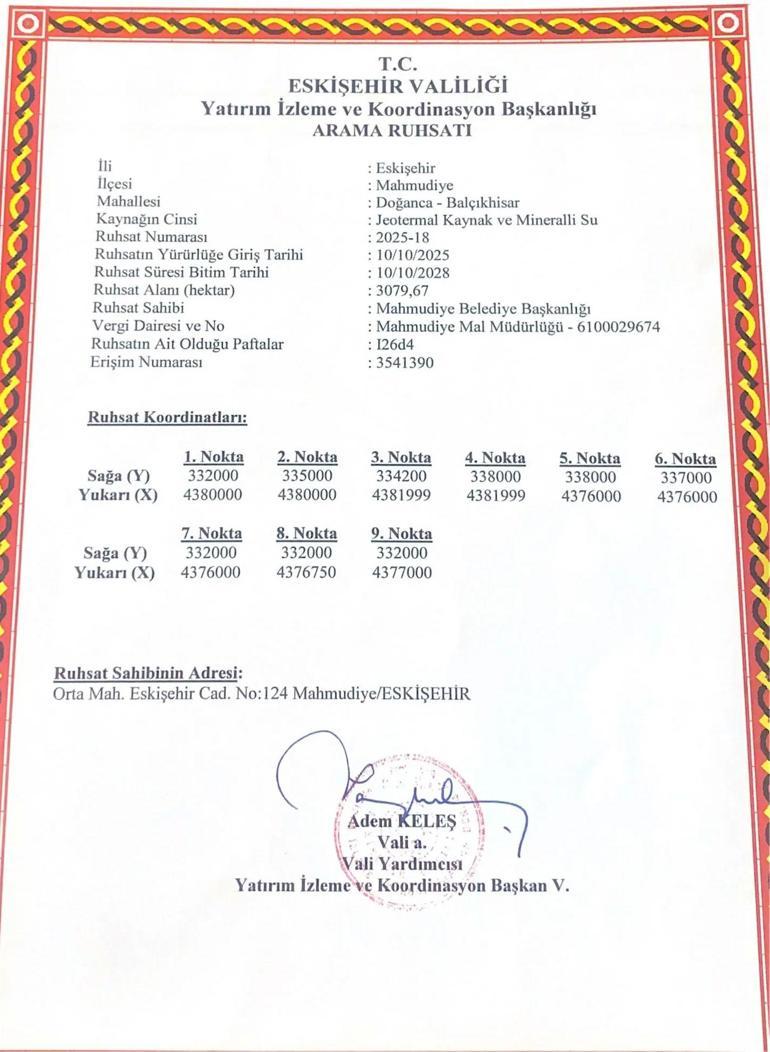 T.C.
ESKİŞEHİR VALİLİĞİ
Yatırım İzleme ve Koordinasyon Başkanlığı
ARAMA RUHSATI
İli : Eskişehir
İlçesi : Mahmudiye
Mahallesi : Doğanca - Balçıkhisar
Kaynağın Cinsi : Jeotermal Kaynak ve Mineralli Su
Ruhsat Numarası : 2025-18
Ruhsatın Yürürlüğe Giriş Tarihi : 10/10/2025
Ruhsat Süresi Bitim Tarihi : 10/10/2028
Ruhsat Alanı (hektar) : 3079,67
Ruhsat Sahibi : Mahmudiye Belediye Başkanlığı
Vergi Dairesi ve No : Mahmudiye Mal Müdürlüğü - 6100029674
Ruhsatın Ait Olduğu Paftalar : I26d4
Erişim Numarası : 3541390
Ruhsat Koordinatları:
1. Nokta 2. Nokta 3. Nokta 4. Nokta 5. Nokta 6. Nokta
Sağa (Y) 332000 335000 334200 338000 338000 337000
Yukarı (X) 4380000 4380000 4381999 4381999 4376000 4376000
7. Nokta 8. Nokta 9. Nokta
Sağa (Y) 332000 332000 332000
Yukarı (X) 4376000 4376750 4377000
Ruhsat Sahibinin Adresi:
Orta Mah. Eskişehir Cad. No:124 Mahmudiye/ESKİŞEHİR
Adem KELEŞ
Vali a.
Vali Yardımcısı
Yatırım İzleme ve Koordinasyon Başkan V.